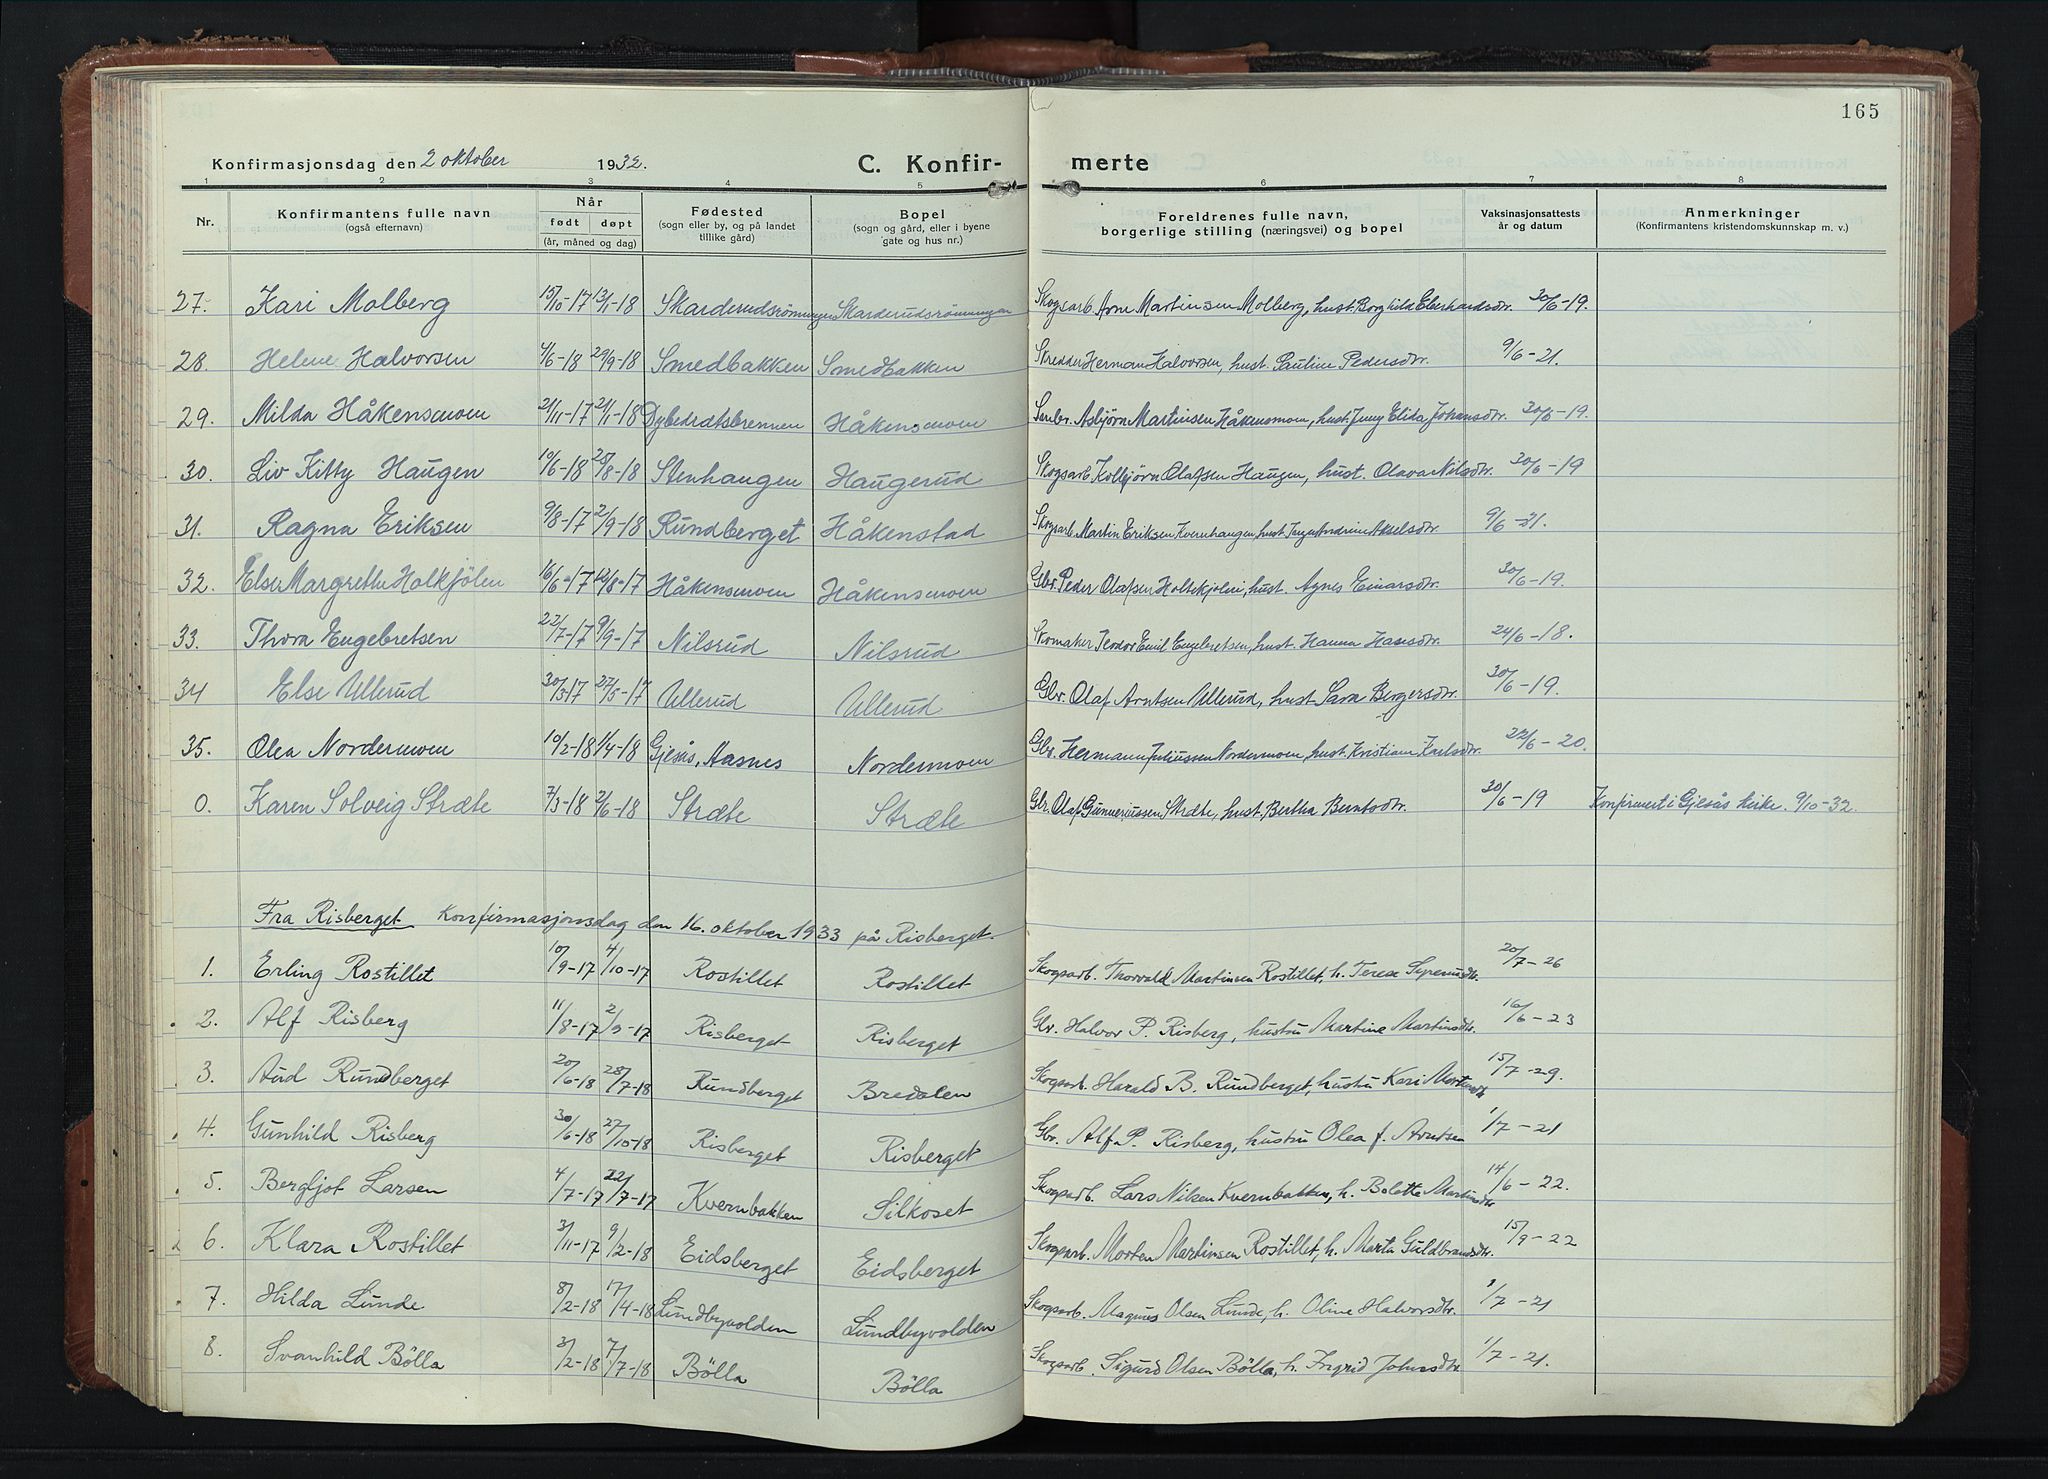 165
Konfirmasjonsdag den 2 oktober 1932. C. Konfir- merte
1 2 3 4 5 6 7 8
Nr. Konfirmantens fulle navn (også efternavn) Når født døpt (år, måned og dag) Fødested (sogn eller by, og på landet tillike gård) Bopel (sogn og gård, eller i byene gate og hus nr.) Foreldrenes fulle navn, borgerlige stilling (næringsvei) og bopel Vaksinasjonsattests år og datum Anmerkninger (Konfirmantens kristendomskunnskap m. v.)
27. Kari Molberg 15/10-17 13/1-18 Skarderudsrømningen Skarderudsrømningen Skogsarb. Arne Martinsen Molberg, hust. Borghild Eberhardsdtr. 30/6-19.
28. Helene Halvorsen 4/6-18 29/9-18 Smedbakken Smedbakken Skredder Herman Halvorsen, hust. Pauline Pedersdtr. 9/6-21.
29. Milda Håkensmoen 21/11-17 21/1-18 Dybedratsbrennen Håkensmoen Asbjørn Martinsen Håkensmoen, hust. Jenny Elida Johansdtr. 30/6-19.
30. Liv Kitty Haugen 10/6-18 25/8-18 Stenhaugen Haugerud Skogsarb. Kolbjørn Olafsen Haugen, hust. Olava Nilsdtr. 30/6-19
31. Ragna Eriksen 9/8-17 2/9-18 Rundberget Håkenstad Skogsarb. Martin Eriksen Kvernhaugen, hust. Andrine Akselsdtr. 9/6-21.
32. Else Margrethe Holkjølen 16/6-17 12/8-17 Håkensmoen Håkensmoen Gbr. Peder Olafsen Holtskjølen, hust. Agnes Einarsdtr. 30/6-19.
33. Thora Engebretsen 22/7-17 9/9-17 Nilsrud Nilsrud Skomaker Teodor Emil Engebretsen, hust. Hanna Hansdtr. 24/6-18.
34 Else Ullerud 30/3-17 27/5-17 Ullerud Ullerud Gbr. Olaf Arntsen Ullerud, hust. Sara Bergersdtr. 30/6-19.
35. Olea Nordermoen 10/2-18 1/4-18 Gjesås, Aasnes Nordermoen Gbr. Hermann Juliussen Nordermoen, hust. Kristiane Karlsdtr. 22/6-20.
0. Karen Solveig Stræte 7/3-18 2/6-18 Stræte Stræte Gbr. Olaf Gunneriussen Stræte, hust. Bertha Berntsdtr. 30/6-19 Konfirmert i Gjesås kirke. 9/10-32.
Fra Risberget Konfirmasjonsdag den 16. oktober 1933 på Risberget.
1. Erling Rostillet 10/9-17 4/10-17 Rostillet Rostillet Skogsarb. Thorvald Martinsen Rostillet, h. Terese 20/7-26
2. Alf Risberg 11/8-17 2/9-17 Risberget Risberget Gbr. Halvor P. Risberg, hustru Martine Martinsdtr. 16/6-23
3. Aud Rundberget 20/6-18 28/7-18 Rundberget Bredalen Skogsarb. Harald B. Rundberget, hustru Kari 15/7-29.
4. Gunhild Risberg 30/6-18 27/10-18 Risberget Risberget Gbr. Alf P. Risberg, hustru Olea f. Arntsen 1/7-21
5. Bergljot Larsen 4/7-17 22/7-17 Kvernbakken Silkoset Skogsarb. Lars Nilsen Kvernbakken, h. Bolette Martinsdtr 14/6-22.
6. Klara Rostillet 3/11-17 9/2-18 Eidsberget Eidsberget Skogsarb. Morten Martinsen Rostillet, h. Marta Guldbrandsdtr. 15/9-22
7. Hilda Lunde 8/2-18 17/4-18 Lundbyvolden Lundbyvolden Skogsarb. Magnus Olsen Lunde, h. Oline Halvorsdtr. 1/7-21
8. Svanhild Bölla 3/2-18 7/7-18 Bölla Bölla Skogsarb. Sigurd Olsen Bölla, h. Ingrid Johnsdtr 1/7-21.